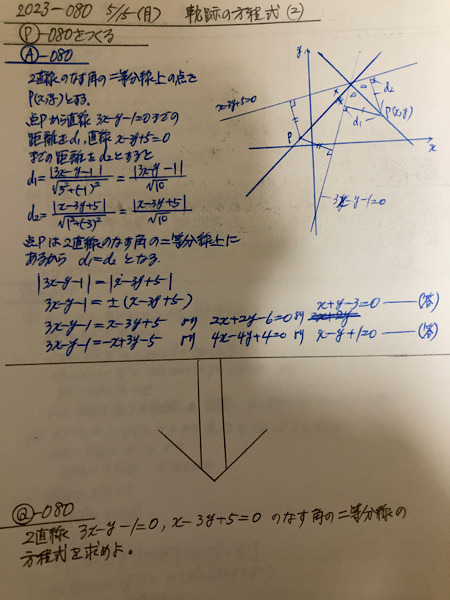 2023-080 5/15(月) 軌跡の方程式(2)
Ⓟ-080をつくる
Ⓐ-080
2直線のなす角の二等分線上の点を
P(x,y)とする.
点Pから直線 3x-y-1=0までの
距離をd₁,直線 x-3y+5=0
までの距離をd₂とすると
d₁=|3x-y-1|/√3²+(-1)²=|3x-y-1|/√10
d₂=|x-3y+5|/√1²+(-3)²=|x-3y+5|/√10
点Pは2直線のなす角の二等分線上に
あるから d₁=d₂ となる.
|3x-y-1|=|x-3y+5|
3x-y-1=±(x-3y+5)
3x-y-1=x-3y+5 より 2x+2y-6=0より x+y-3=0 ―(答)
3x-y-1=-x+3y-5 より 4x-4y+4=0より x-y+1=0 ―(答)
y
x-3y+5=0
d₂
P(x,y)
d₁
P
x
3x-y-1=0
Ⓠ-080
2直線 3x-y-1=0, x-3y+5=0 のなす角の二等分線の
方程式を求めよ。